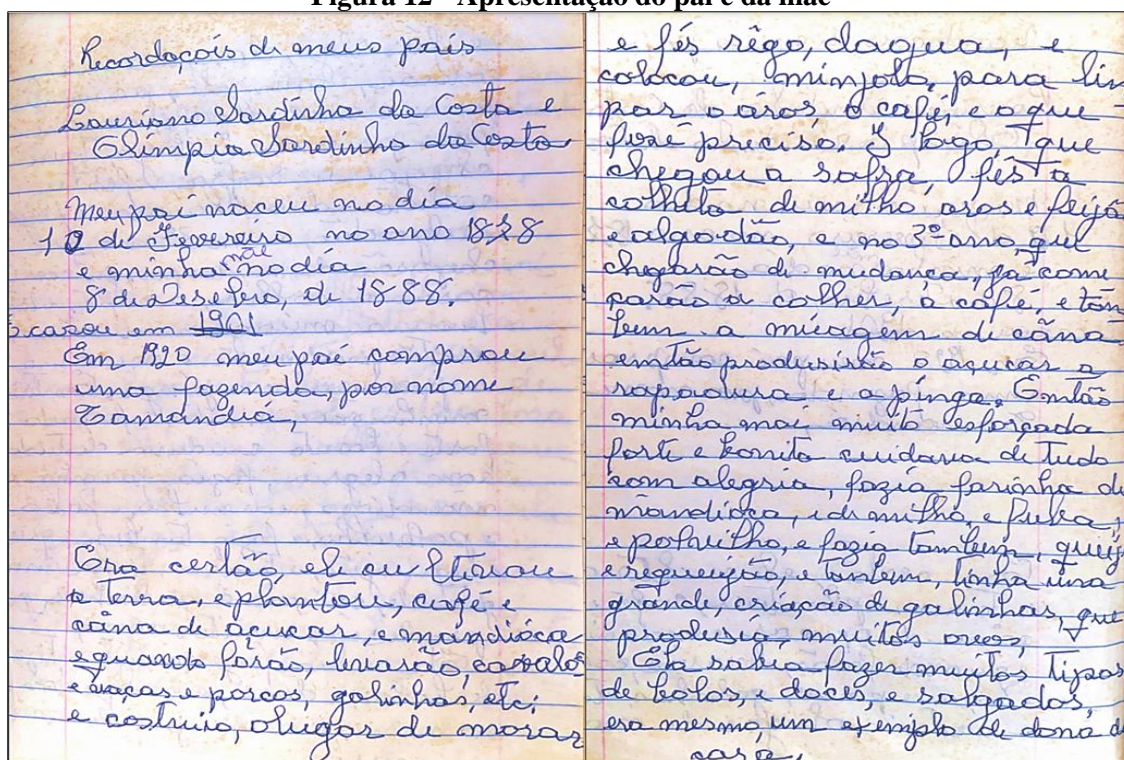 Figura 12 - Apresentação do pai e da mãe
Recordaçois di meus pais
Lauriano Sardinha da Costa e
Olimpia Sardinha da Costa
Meu pai naceu no dia
10 de Fevereiro no ano 1878
e minha mãe no dia
8 de Desebero, de 1888.
casou em 1901
Em 1920 meu pai comprou
uma fazenda, por nome
Tamanduá,
Era certão, ele cultivou
a terra, e plantou, café e
cãna de açucar, e mandióca
e quando fôrão, levarão, cavalos
e vacas e porcos, galinhas, etc;
e costruiu, o lugar de morar
e fés rêgo, daqua, e
colocou, minjolo, para lin
par o aros, o café, e o que
fose preciso. E logo, que
chegou a safra, fés a
colheita de milho aros e feijã
e algodão, e no 3º ano, que
chegarão di mudança, ja come
çarão a colher, o café, e tãn
bem a muagem di cãna
emtão produsirão o açucar a
rapadura e a pinga. Emtão
minha mai muito esforçada
forte e bonita cuidava de tudo
com alegria, fazia farinha di
mãndioca, e di milho, e fuba,
e polvilho, e fazia tambem, queij
e requeijão, e tanbem, tinha uma
grande, criação de galinhas, que
produsia, muitos ovos,
Ela sabia fazer muitos tipos
de bolos, e doces, e salgados,
era mesmo, um exemplo de dona d
casa,